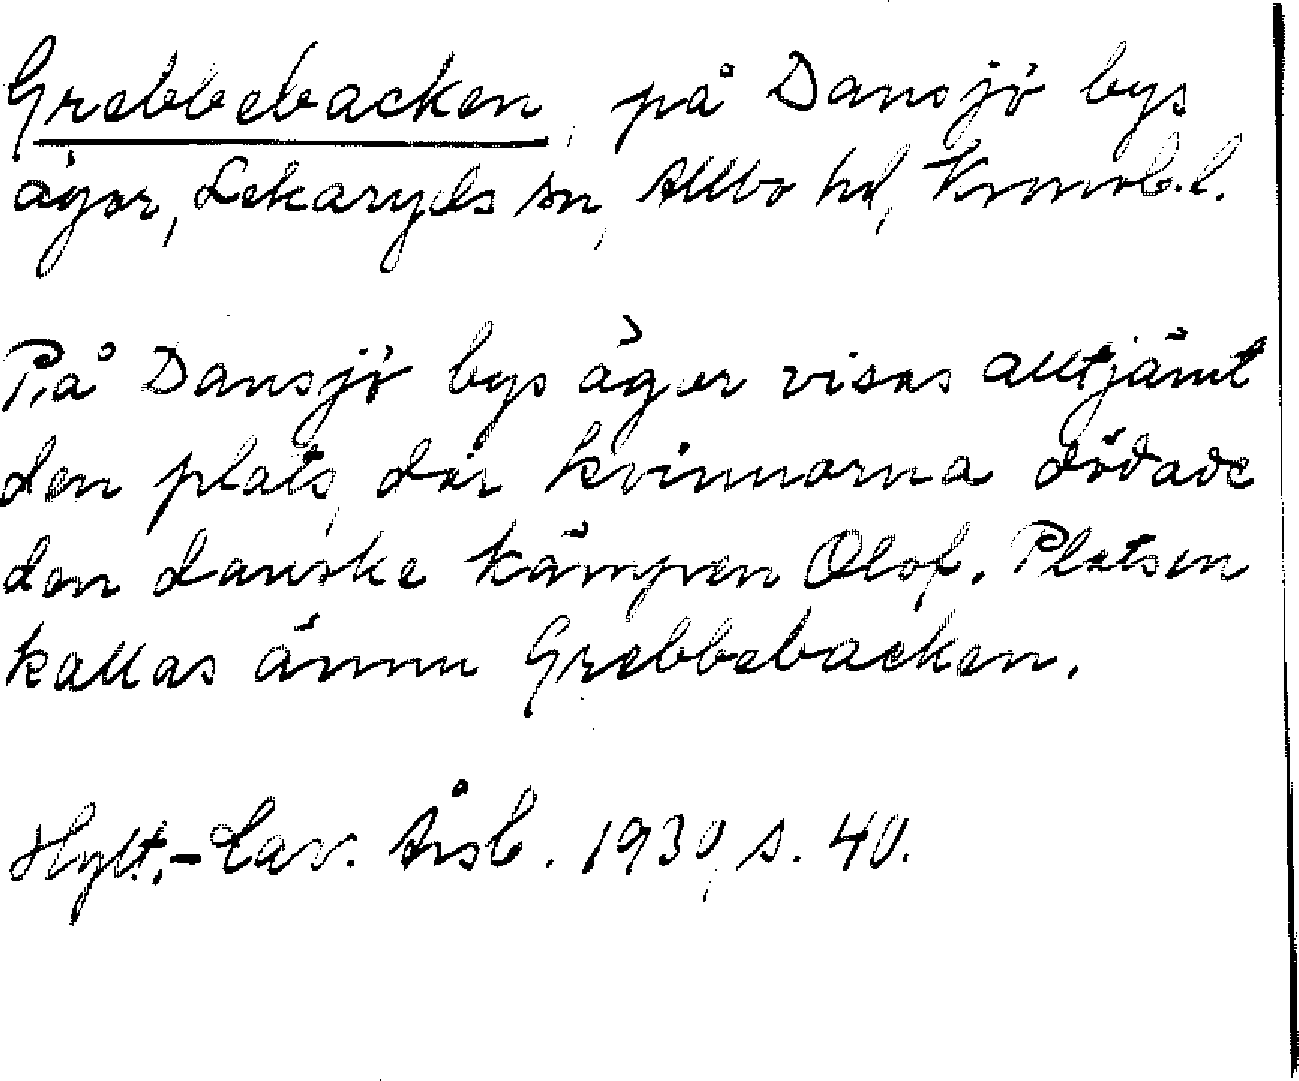 Grebbebacken, på Dansjö bys
ägor, Lekaryds sn, Allbo hd, Kronob. l.
På Dansjö bys ägor visas alltjämt
den plats, där kvinnorna dödade
den danske kämpen Olof. Platsen
kallas ännu Grebbebacken.
Hylt.-Cav. Årsb. 1930, s. 40.